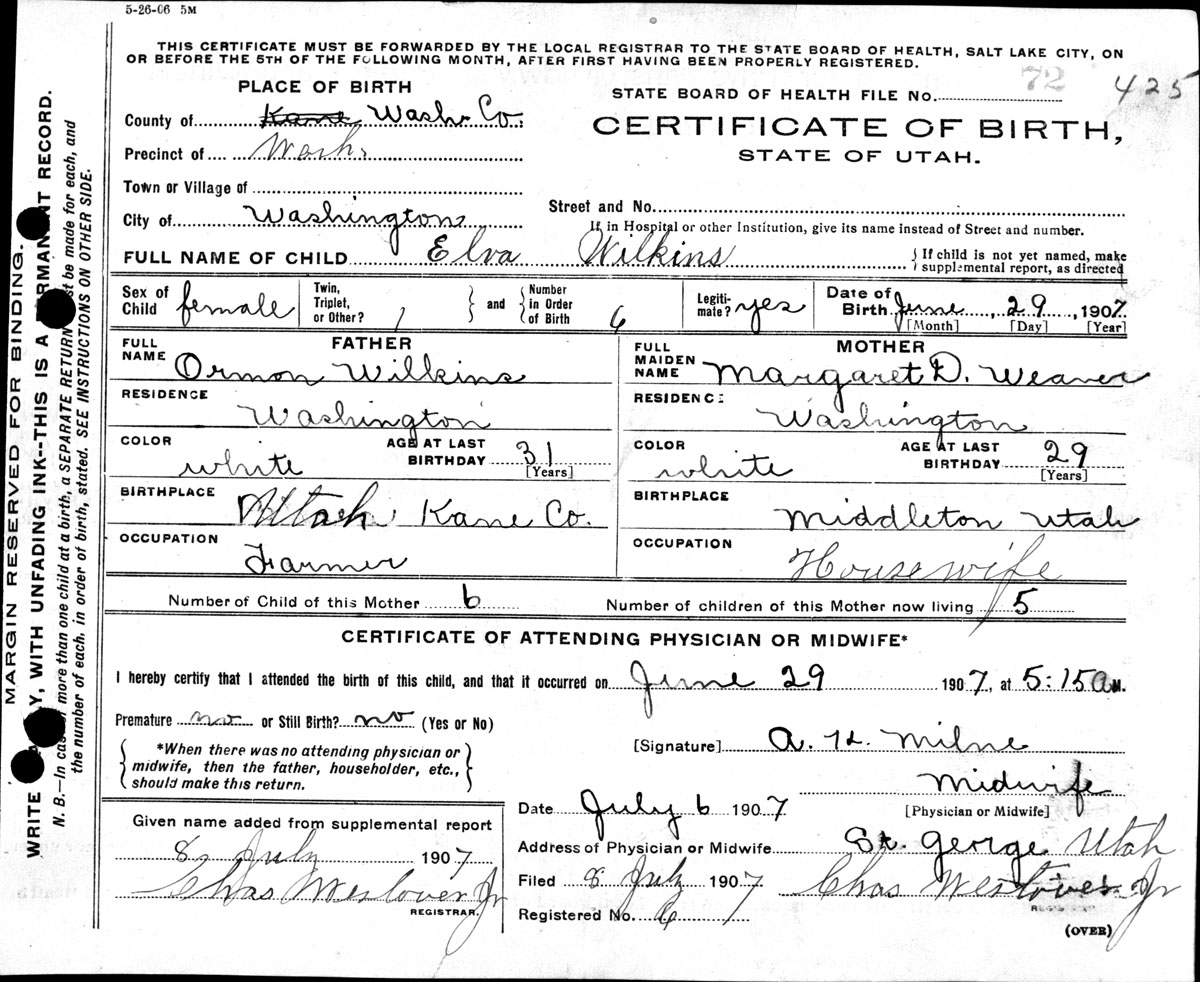 5-26-06 5M
THIS CERTIFICATE MUST BE FORWARDED BY THE LOCAL REGISTRAR TO THE STATE BOARD OF HEALTH, SALT LAKE CITY, ON
OR BEFORE THE 5TH OF THE FOLLOWING MONTH, AFTER FIRST HAVING BEEN PROPERLY REGISTERED.
PLACE OF BIRTH
STATE BOARD OF HEALTH FILE No. 72 425
County of Kane Wash. Co.
CERTIFICATE OF BIRTH,
STATE OF UTAH.
Precinct of Wash.
Town or Village of
City of Washington
Street and No.
If in Hospital or other Institution, give its name instead of Street and number.
FULL NAME OF CHILD Elva Wilkins
If child is not yet named, make
supplemental report, as directed
Sex of Child female
Twin, Triplet, or Other? 1
and Number in Order of Birth 6
Legitimate? yes
Date of Birth June, 29, 1907
[Month] [Day] [Year]
FATHER
FULL NAME Ormon Wilkins
RESIDENCE Washington
COLOR white AGE AT LAST BIRTHDAY 31
[Years]
BIRTHPLACE Utah Kane Co.
OCCUPATION Farmer
MOTHER
FULL MAIDEN NAME Margaret D. Weaver
RESIDENCE Washington
COLOR white AGE AT LAST BIRTHDAY 29
[Years]
BIRTHPLACE Middleton Utah
OCCUPATION Housewife
Number of Child of this Mother 6 Number of children of this Mother now living 5
CERTIFICATE OF ATTENDING PHYSICIAN OR MIDWIFE*
I hereby certify that I attended the birth of this child, and that it occurred on June 29 1907, at 5:15 a M.
Premature no or Still Birth? no (Yes or No)
*When there was no attending physician or
midwife, then the father, householder, etc.,
should make this return.
[Signature] A. H. Milne
Midwife
[Physician or Midwife]
Date July 6 1907
Address of Physician or Midwife St. George Utah
Given name added from supplemental report
8 July 1907
Chas Westover Jr
REGISTRAR.
Filed 8 July 1907 Chas Westover Jr
Registered No. 6 7
(OVER)
MARGIN RESERVED FOR BINDING.
WRITE Y, WITH UNFADING INK--THIS IS A RMANENT RECORD.
N. B.—In case of more than one child at a birth, a SEPARATE RETURN must be made for each, and
the number of each, in order of birth, stated. SEE INSTRUCTIONS ON OTHER SIDE.